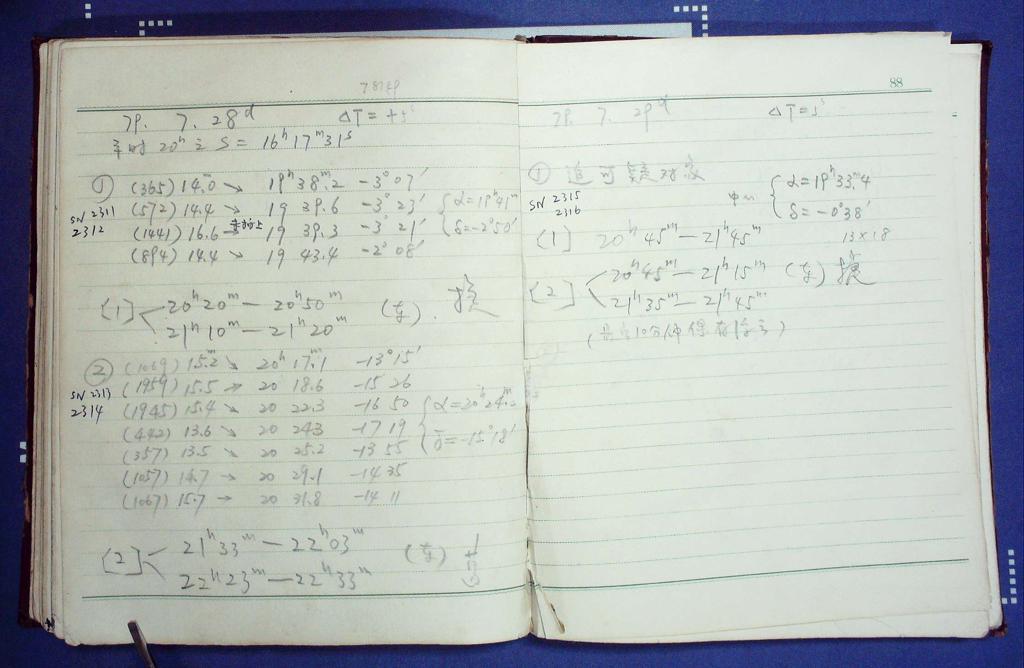 79. 7. 28ᵈ ΔT = +5ˢ
20ʰ之 S = 16ʰ17ᵐ31ˢ
① (365) 14.ᵐ0 ↘ 19ʰ38ᵐ.2 -3°07′
SN 2311
2312
(572) 14.4 ↘ 19 39.6 -3 23′
(1441) 16.6 → 19 39.3 -3 21′
(894) 14.4 ↘ 19 43.4 -2°08′
{ α=19ʰ41ᵐ
δ=-2°50′
[1] < 20ʰ20ᵐ — 20ʰ50ᵐ
21ʰ10ᵐ — 21ʰ20ᵐ
② (1069) 15.ᵐ2 ↘ 20ʰ17ᵐ.1 -13°15′
SN 2313
2314
(1959) 15.5 → 20 18.6 -15 26
(1945) 15.4 ↘ 20 22.3 -16 50
(442) 13.6 ↘ 20 24.3 -17 19
(357) 13.5 ↘ 20 25.2 -13 55
(1057) 14.7 → 20 29.1 -14 35
(1067) 15.7 → 20 31.8 -14 11
{ α=20ʰ24ᵐ
δ=-15°18′
[2] < 21ʰ33ᵐ — 22ʰ03ᵐ
22ʰ23ᵐ — 22ʰ33ᵐ
88
79. 7. 29ᵈ ΔT = 5ˢ
① 追可疑对象
SN 2315
2316
{ α=19ʰ33ᵐ.4
δ=-0°38′
13×18
[1] 20ʰ45ᵐ — 21ʰ45ᵐ
[2] < 20ʰ45ᵐ — 21ʰ15ᵐ
21ʰ35ᵐ — 21ʰ45ᵐ